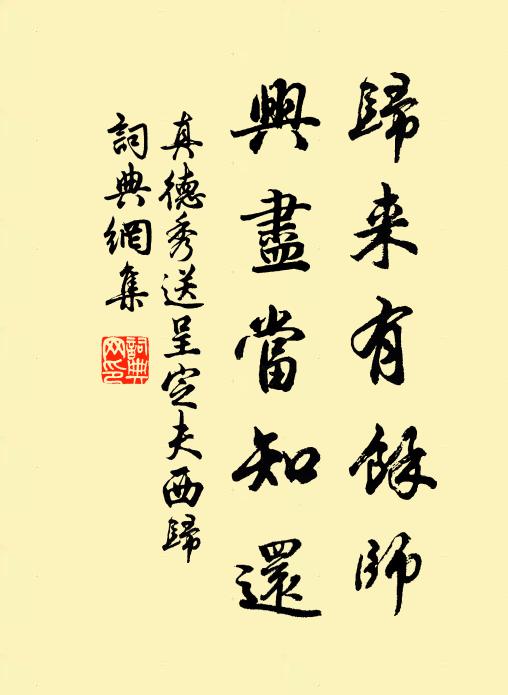 歸来有餘師
興盡當知還
真德秀送呈定夫西歸
詞典網集
詞典网印